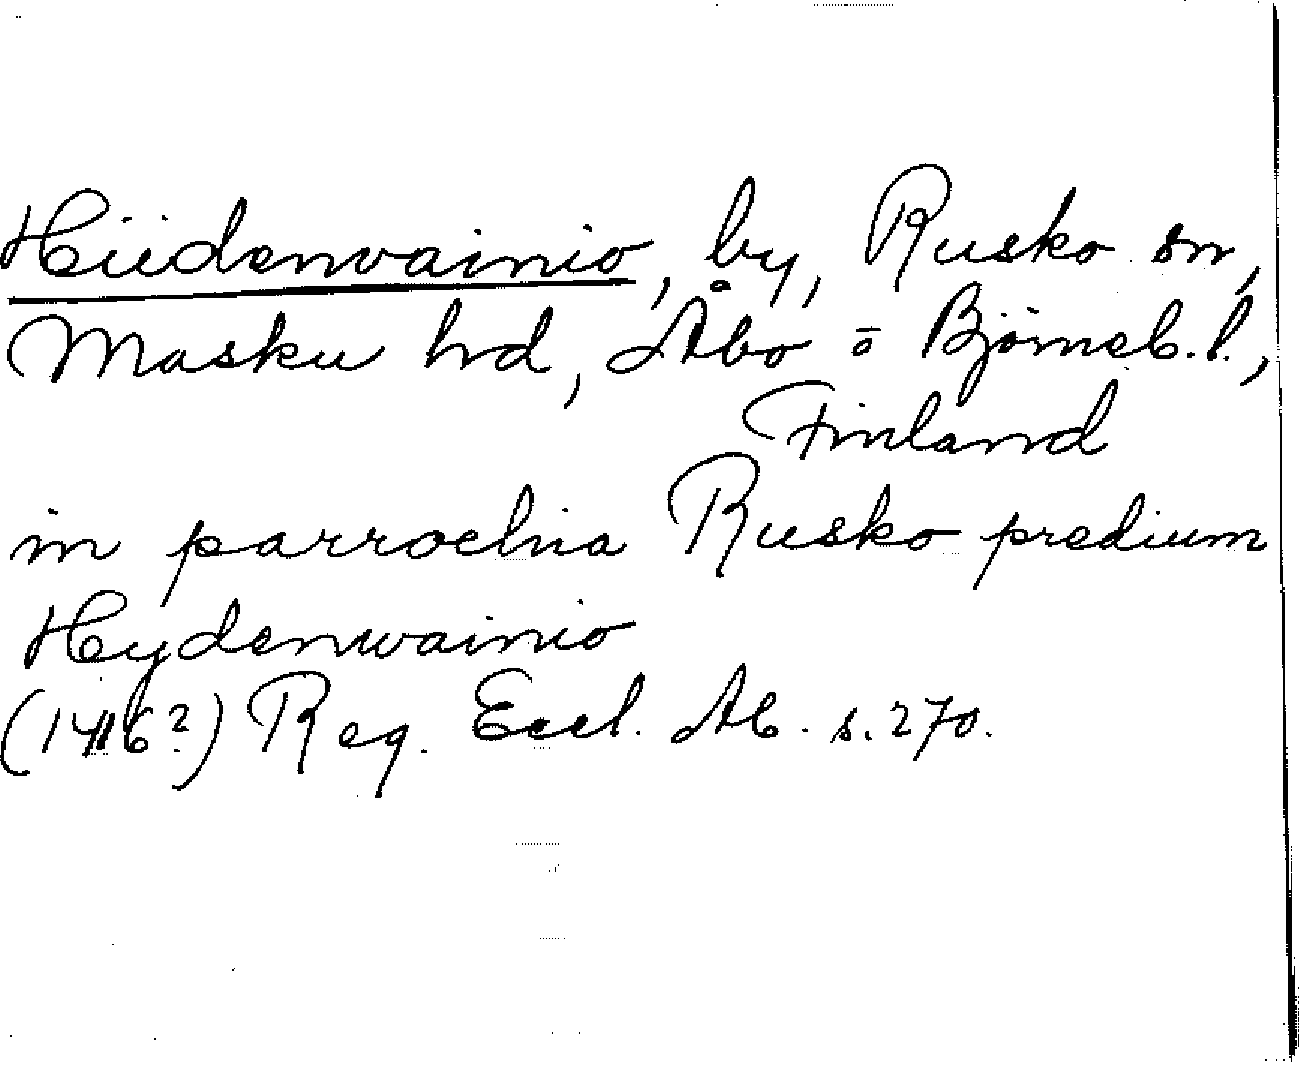 Hiidenvainio, by, Rusko sn,
Masku hd, Åbo o Björneb. l.,
Finland
in parrochia Rusko predium
Hydenwainio
(1416?) Reg. Eccl. Ab. s. 270.